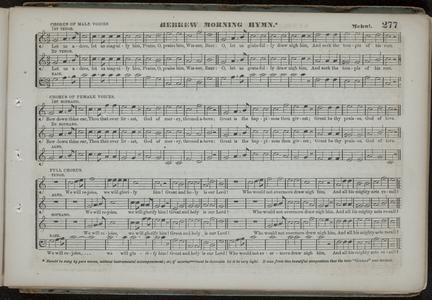 CHORUS OF MALE VOICES
HEBREW MORNING HYMN.*
Mehul.
277
1ST TENOR.
Let us adore, let us magnify him, Praise, O, praise him,
O, let us gratefully draw nigh him, And seek the temple of his rest.
2D TENOR.
Let us adore, let us magnify him, Praise, O, praise him,
O, let us gratefully draw nigh him, And seek the temple of his rest.
BASE.
CHORUS OF FEMALE VOICES.
1ST SOPRANO.
Bow down thine ear, Thou that ever livest, God of mercy, throned above: Great is the happiness thou givest; Great be thy praise, God of love.
2D SOPRANO.
Bow down thine ear, Thou that ever livest, God of mercy, throned above: Great is the happiness thou givest; Great be thy praise, God of love.
ALTO.
FULL CHORUS.
TENOR.
We will rejoice, we will glorify him! Great and holy is our Lord! Who would not evermore draw nigh him, And all his mighty acts record!
ALTO.
We will rejoice, we will glorify him! Great and holy is our Lord! Who would not evermore draw nigh him, And all his mighty acts record!
SOPRANO.
We will rejoice, we will glorify him! Great and holy is our Lord! Who would not evermore draw nigh him, And all his mighty acts record!
BASE.
We will rejoice, we will glorify him! Great and holy is our Lord! Who would not evermore draw nigh him, And all his mighty acts record!
* Should be sung by pure voices, without instrumental accompaniment; or, if